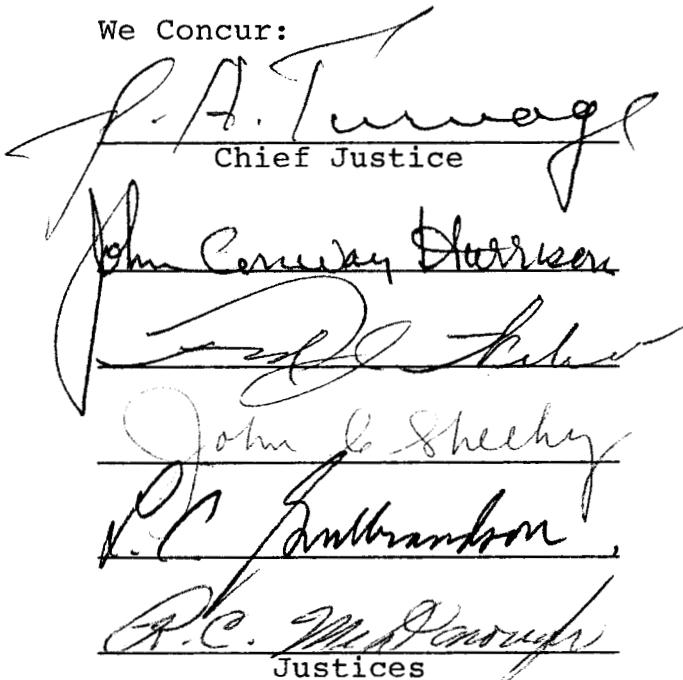 We Concur:
J. A. Turnage
Chief Justice
John Conway Harrison
John C Sheehy
L. C. Gulbrandson
R. C. McDonough
Justices